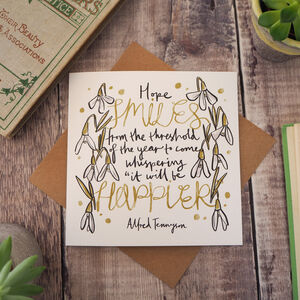 Their Beauty
& Associations
Hope
SMILES
from the threshold
of the year to come
whispering
"it will be
HAPPIER
Alfred Tennyson